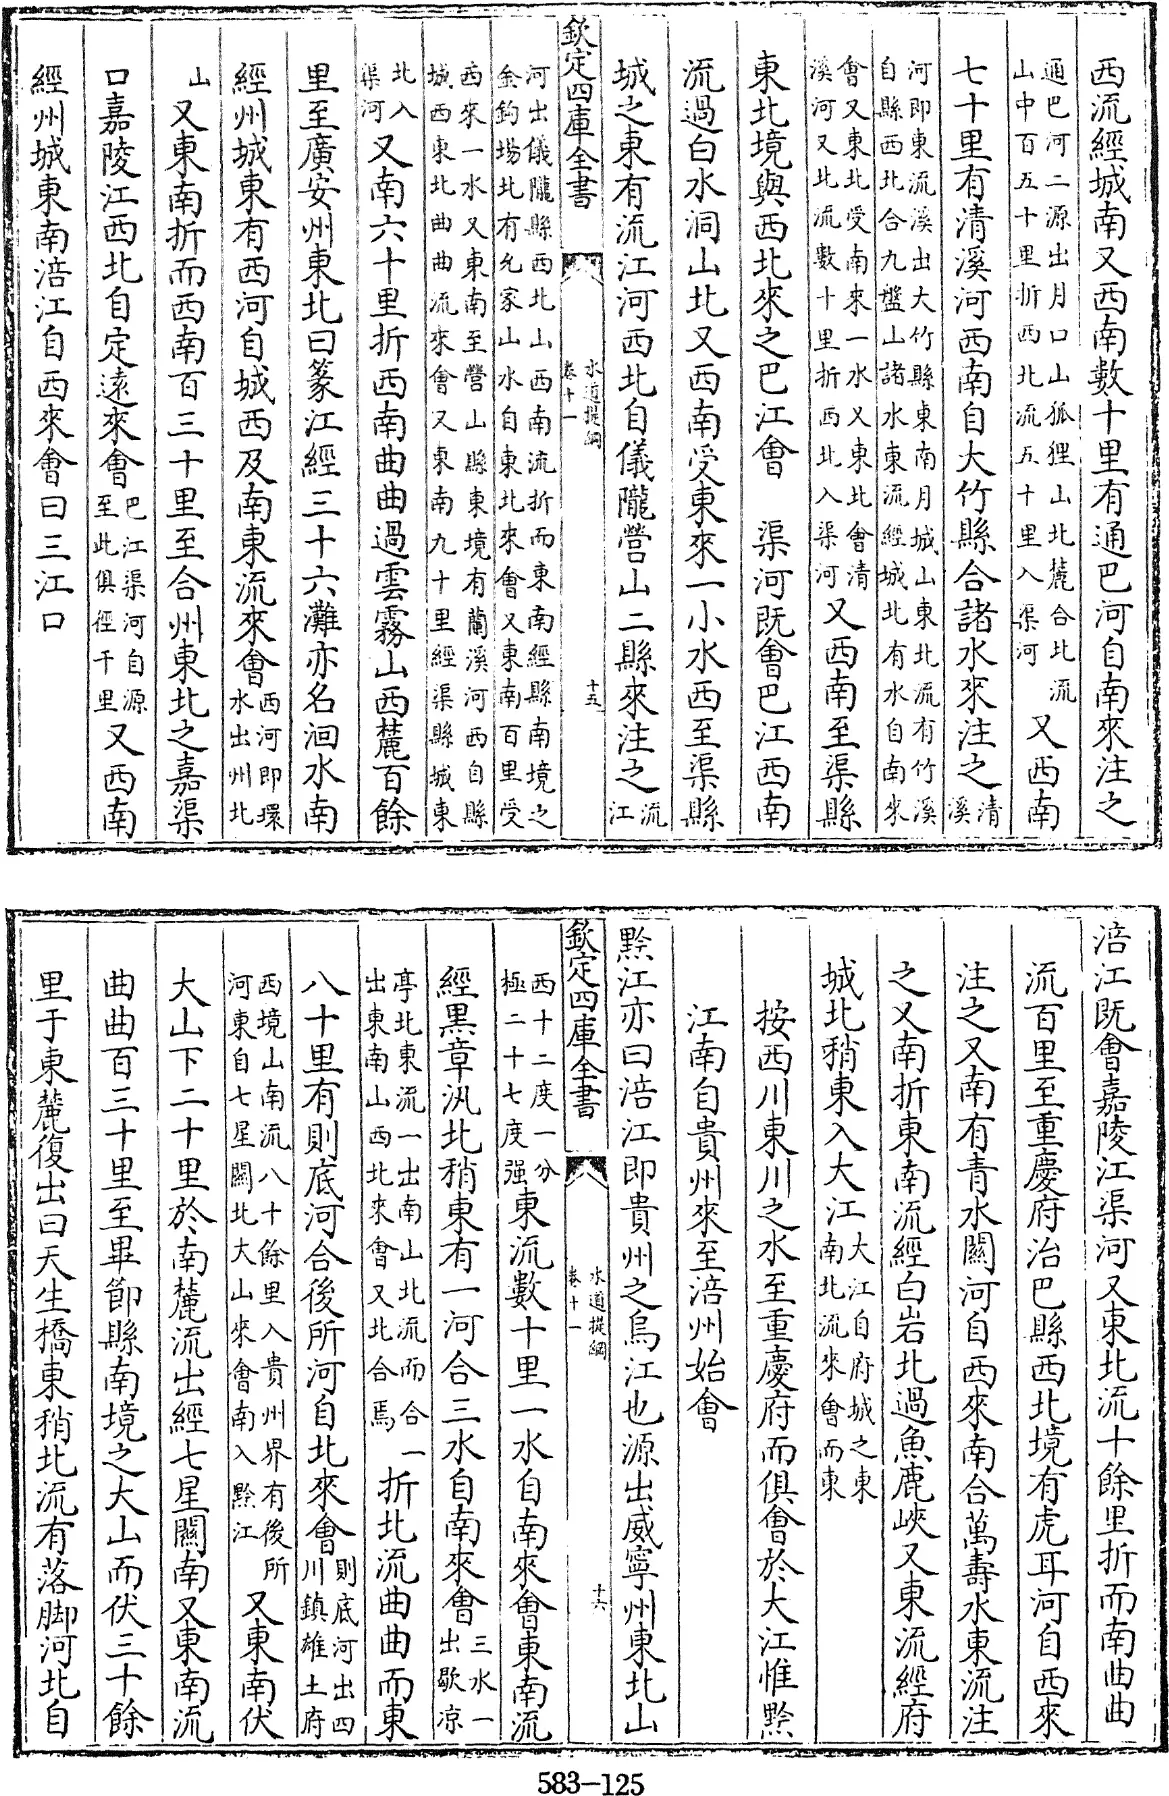 西流經城南又西南數十里有通巴河自南來注之
通巴河二源出月口山狐狸山北麓合北流
山中百五十里折西北流五十里入渠河
又西南
七十里有清溪河西南自大竹縣合諸水來注之
清
溪
河即東流溪出大竹縣東南月城山東北流有竹溪
自縣西北合九盤山諸水東流經城北有水自南來
會又東北受南來一水又東北會清
溪河又北流數十里折西北入渠河
又西南至渠縣
東北境與西北來之巴江會　渠河既會巴江西南
流過白水洞山北又西南受東來一小水西至渠縣
城之東有流江河西北自儀隴營山二縣來注之
流
江
欽定四庫全書
水道提綱
卷十一
十五
河出儀隴縣西北山西南流折而東南經縣南境之
金鉤場北有允家山水自東北來會又東南百里受
西來一水又東南至營山縣東境有蘭溪河西自縣
城西東北曲曲流來會又東南九十里經渠縣城東
北入
渠河
又南六十里折西南曲曲過雲霧山西麓百餘
里至廣安州東北曰篆江經三十六灘亦名洄水南
經州城東有西河自城西及南東流來會
西河即環
水出州北
山
又東南折而西南百三十里至合州東北之嘉渠
口嘉陵江西北自定遠來會
巴江渠河自源
至此俱徑千里
又西南
經州城東南涪江自西來會曰三江口
涪江既會嘉陵江渠河又東北流十餘里折而南曲曲
流百里至重慶府治巴縣西北境有虎耳河自西來
注之又南有青水關河自西來南合萬壽水東流注
之又南折東南流經白岩北過魚鹿峽又東流經府
城北稍東入大江
大江自府城之東
南北流來會而東
按西川東川之水至重慶府而俱會於大江惟黔
江南自貴州來至涪州始會
黔江亦曰涪江即貴州之烏江也源出威寧州東北山
欽定四庫全書
水道提綱
卷十一
十六
西十二度一分
極二十七度强
東流數十里一水自南來會東南流
經黑章汎北稍東有一河合三水自南來會
三水一
出歇凉
亭北東流一出南山北流而合一
出東南山西北來會又北合焉
折北流曲曲而東
八十里有則底河合後所河自北來會
則底河出四
川鎮雄土府
西境山南流八十餘里入貴州界有後所
河東自七星關北大山來會南入黔江
又東南伏
大山下二十里於南麓流出經七星關南又東南流
曲曲百三十里至畢節縣南境之大山而伏三十餘
里于東麓復出曰天生橋東稍北流有落脚河北自
583–125